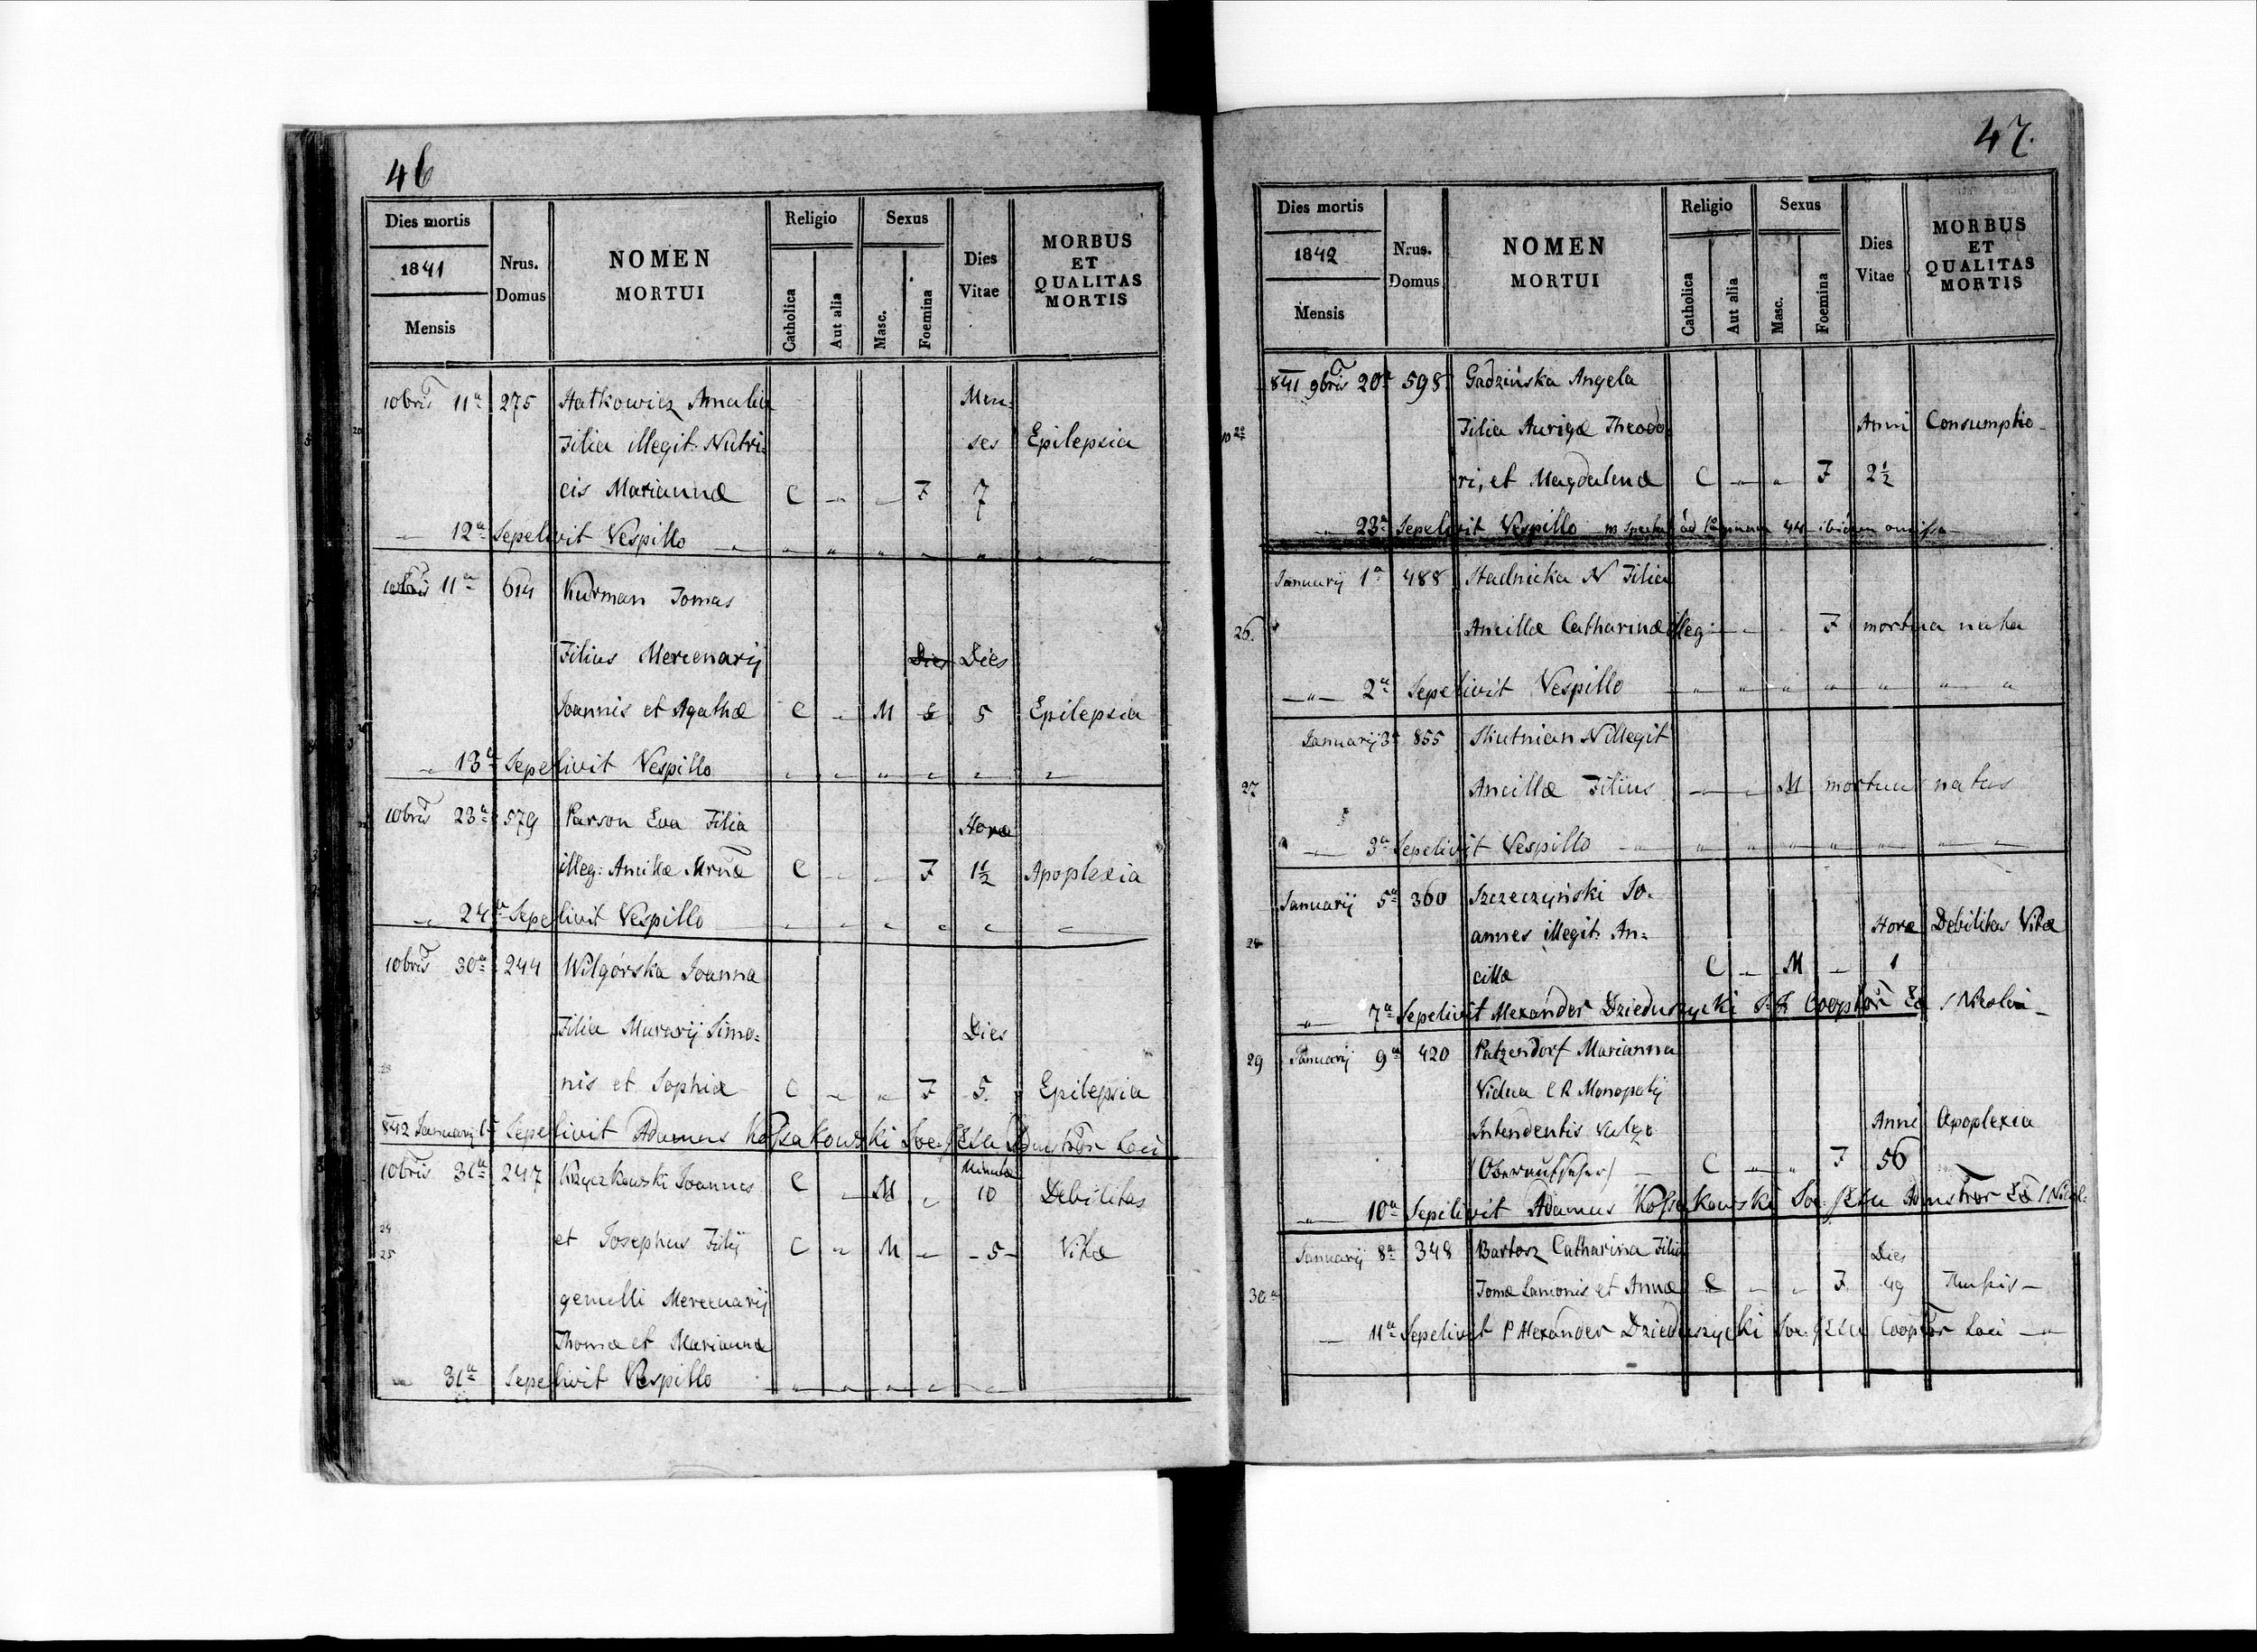 46
Dies mortis
1841
Mensis
Nrus. Domus
NOMEN MORTUI
Religio
Catholica
Aut alia
Sexus
Masc.
Foemina
Dies Vitae
MORBUS ET QUALITAS MORTIS
10bris 11a 275 Hatkowicz Amalia Men-
Filia illegit. Nutri- ses Epilepsia
cis Mariannæ C F 7
12a Sepelivit Vespillo
10bris 11a 614 Kurman Tomas
Filius Mercenarij Dies Dies
Joannis et Agathæ C M 5 5 Epilepsia
13a Sepelivit Vespillo
10bris 23a 579 Parson Eva Filia Horæ
illeg: Ancillæ Mrnæ C F 1½ Apoplexia
24a Sepelivit Vespillo
10bris 30a 244 Wilgórska Joanna
Filia Murarij Simo= Dies
nis et Sophiæ C F 5. Epilepsia
842 Januarij Sepelivit Adamus Kossakowski Soc. Loci
10bris 31a 247 Krzyczkowski Joannes C M Minutæ 10 Debilitas
24
25 et Josephus Filij C M 5 Vitæ
gemelli Mercenarij
Thomæ et Mariannæ
31a Sepelivit Vespillo
47.
Dies mortis
1842
Mensis
Nrus. Domus
NOMEN MORTUI
Religio
Catholica
Aut alia
Sexus
Masc.
Foemina
Dies Vitae
MORBUS ET QUALITAS MORTIS
841 9bris 20a 598 Gadzińska Angela
Filia Aurigæ Theodo Anni Consumptio
ri, et Magdalenæ C F 2½
23a Sepelivit Vespillo ad 44 ibidem omissa
Januarij 1a 488 Stadnicka N Filia
26. Ancillæ Catharinæ illeg: F mortua nata
2a Sepelivit Vespillo
Januarij 3a 855 Skutnian N illegit
27 Ancillæ Filius M mortuus natus
3a Sepelivit Vespillo
Januarij 5a 360 Szczeczyński Jo-
28 annes illegit. An= Horæ Debilitas Vitæ
cillæ C M 1
7a Sepelivit Alexander Dzieduszycki
29 Januarij 9a 420 Patzendorf Marianna
Vidua C R Monopolij
Intendentis vulgo Anni Apoplexia
(Oberaufseher) C F 56
10a Sepelivit Adamus Kossakowski Soc.
Januarij 8a 348 Bartosz Catharina Filia Dies
30a Tomæ Lanionis et Annæ C F 49 Tussis
11a Sepelivit P Alexander Dzieduszycki Soc. Cooptor Loci